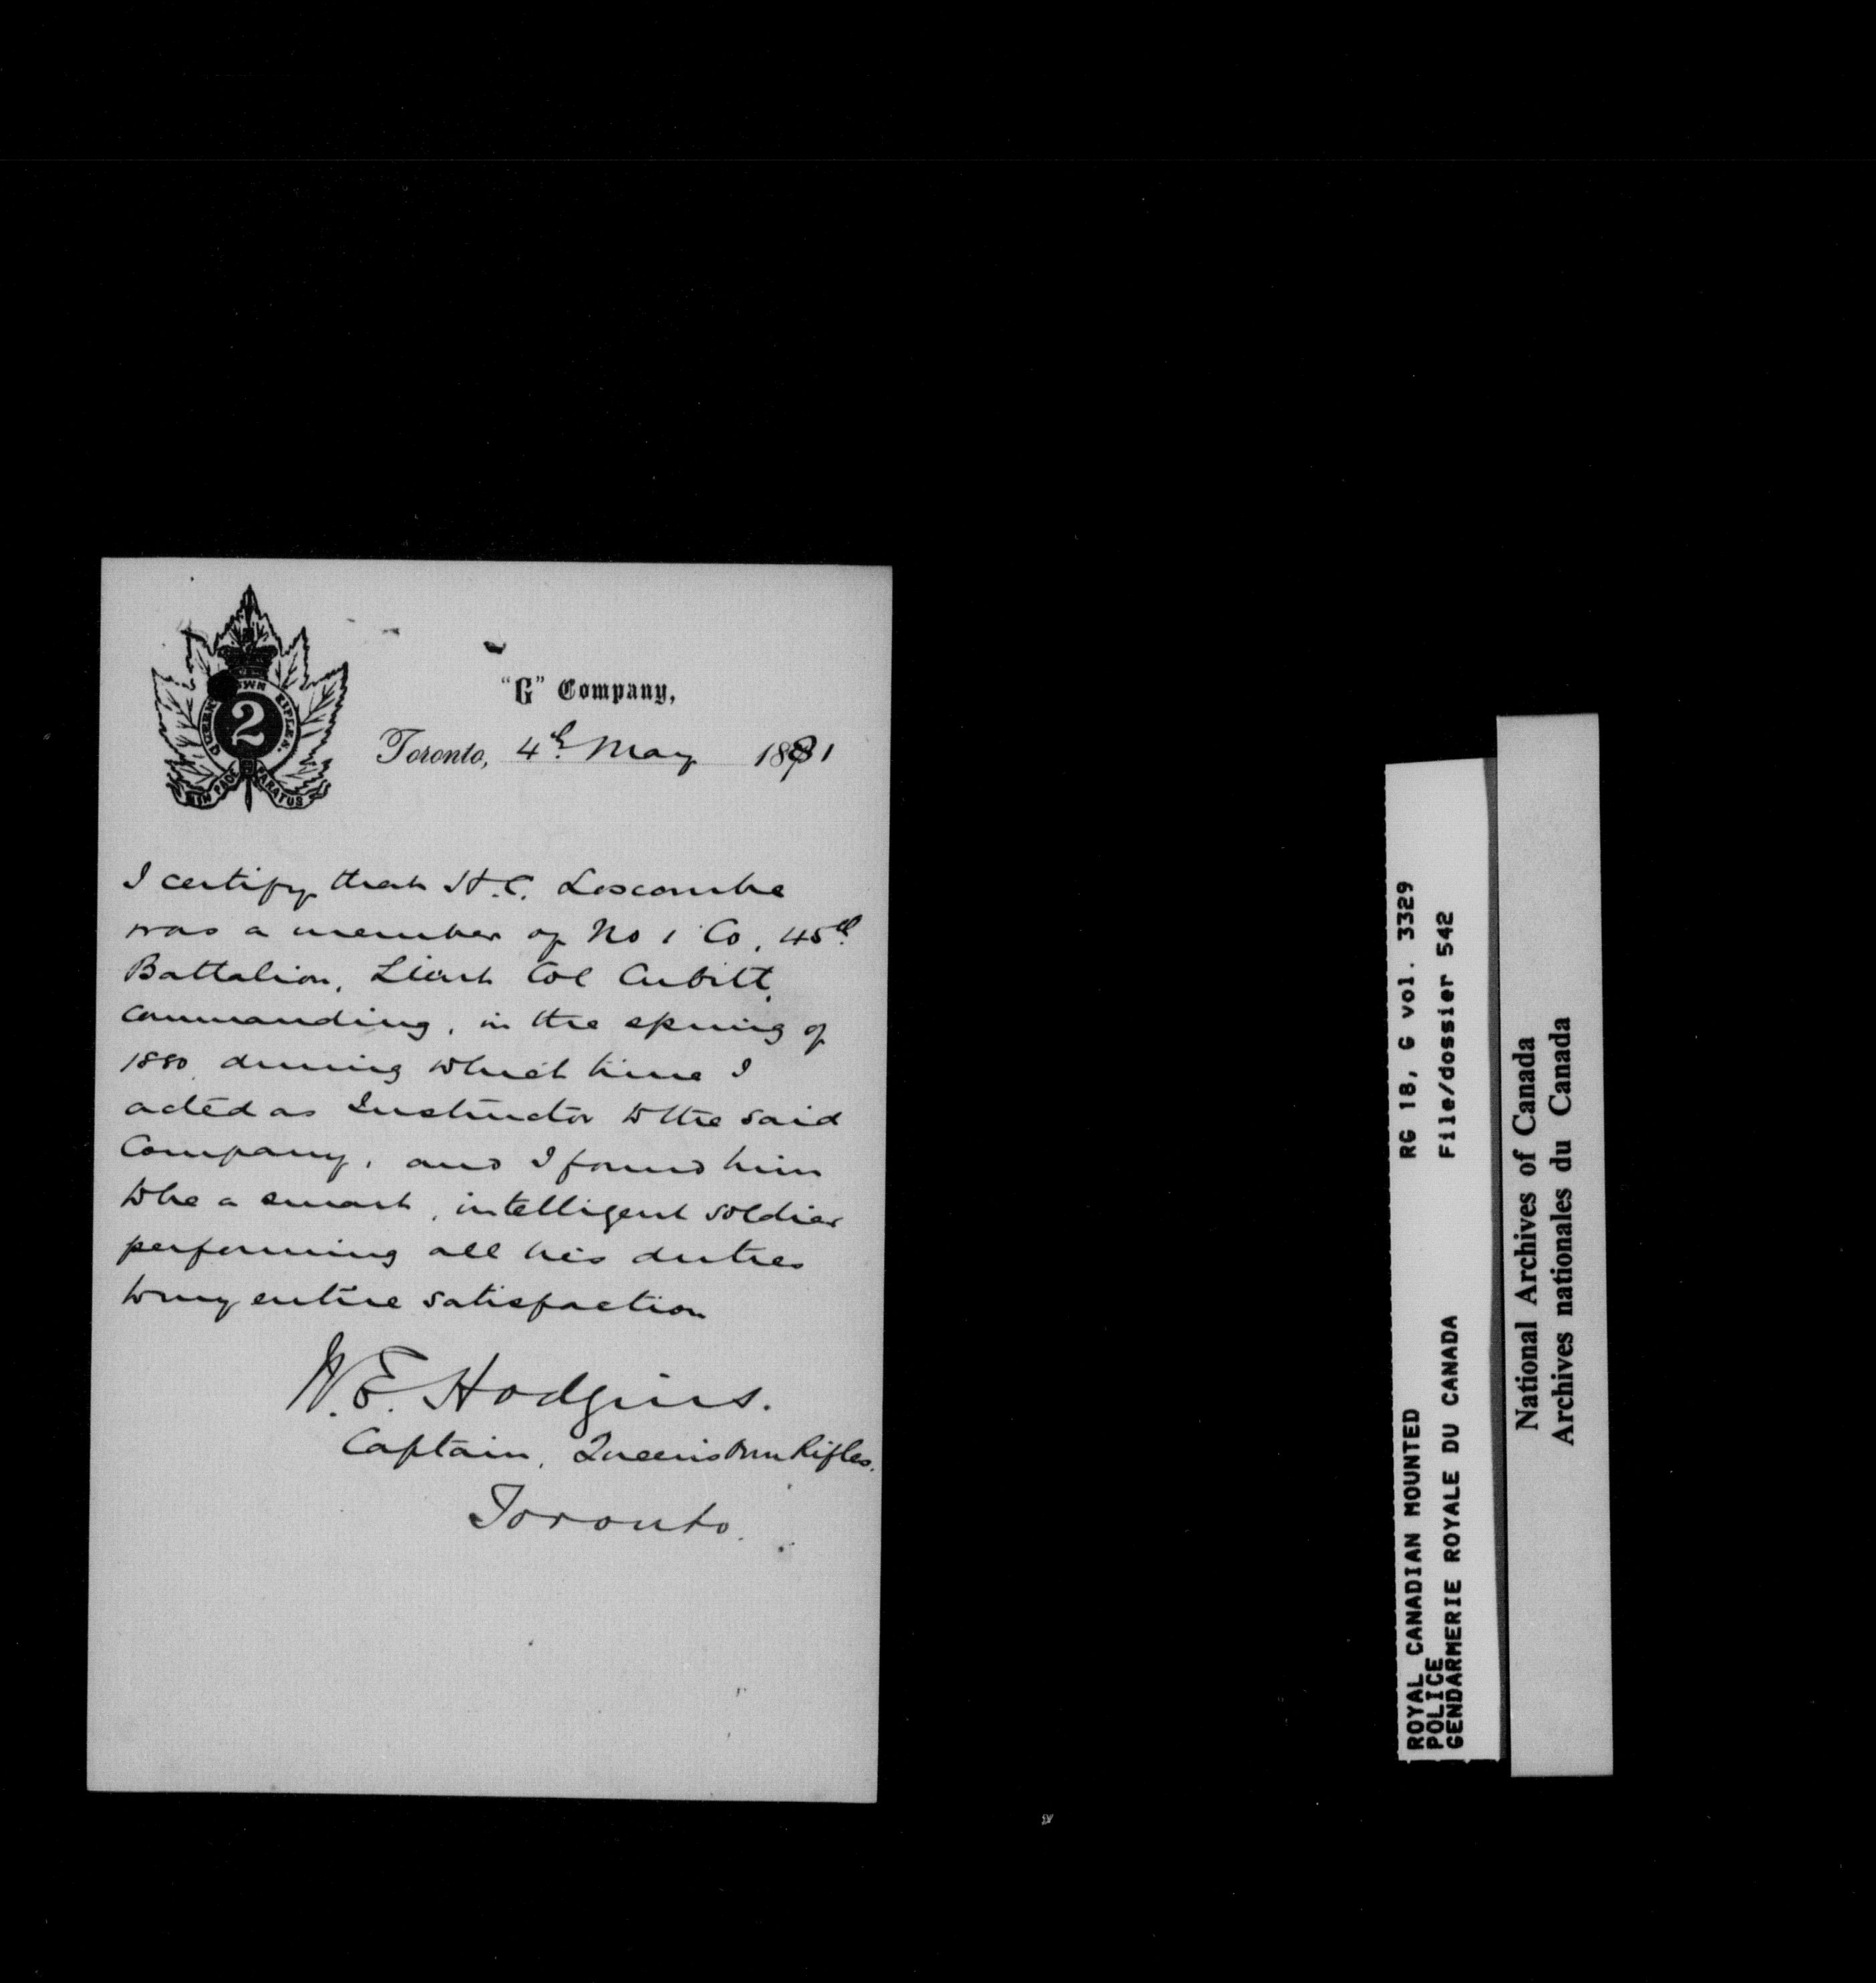 QUEEN'S OWN RIFLES.
2
IN PACE PARATUS
"G" Company,
Toronto, 4th May 1881
I certify that H.C. Loscombe
was a member of No 1 Co, 45th
Battalion, Lieut Col Cubitt,
commanding, in the spring of
1880 during which time I
acted as Instructor to the said
Company, and I found him
to be a smart, intelligent soldier
performing all his duties
to my entire satisfaction
W.E. Hodgins.
Captain, Queen's Own Rifles.
Toronto.
ROYAL CANADIAN MOUNTED RG 18, G vol. 3329
POLICE File/dossier 542
GENDARMERIE ROYALE DU CANADA
National Archives of Canada
Archives nationales du Canada